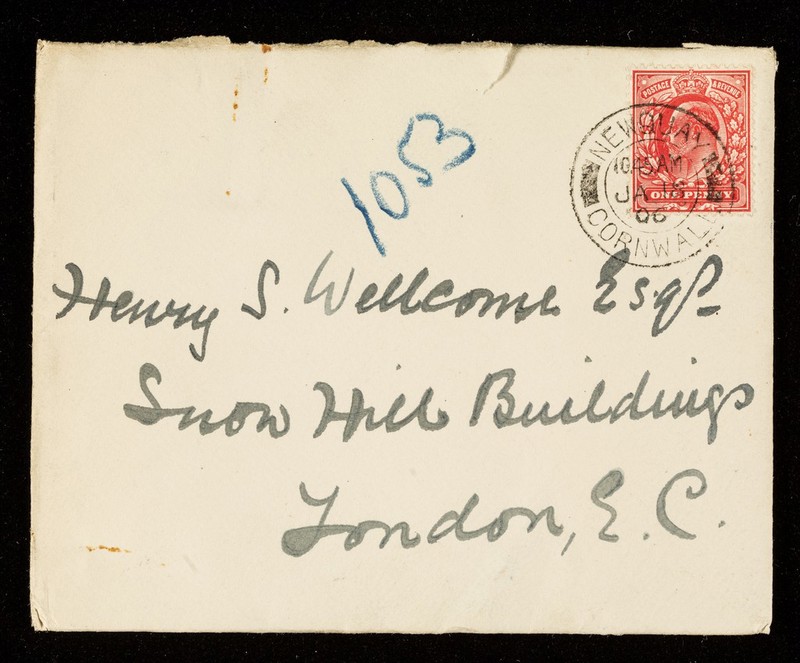 1053
POSTAGE & REVENUE
ONE PENNY
NEWQUAY
10.45AM
JA
06
CORNWALL
Henry S. Wellcome Esqr
Snow Hill Buildings
London, E.C.